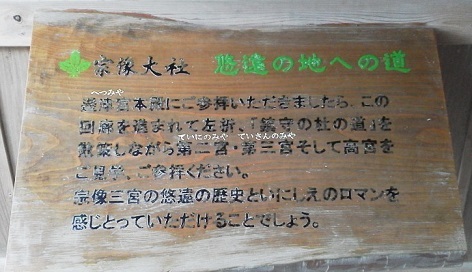 宗像大社 悠遠の地への道
へつみや
辺津宮本殿にご参拝いただきましたら、この
回廊を進まれて左折、「鎮守の杜の道」を
ていにのみや ていさんのみや
散策しながら第二宮・第三宮そして高宮を
ご見学、ご参拝ください。
宗像三宮の悠遠の歴史といにしえのロマンを
感じとっていただけることでしょう。